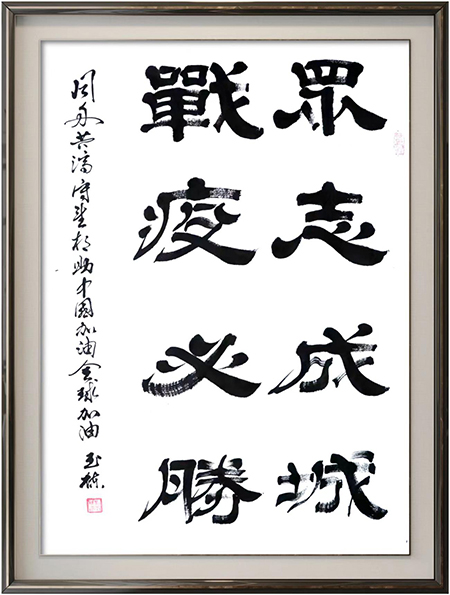 眾志成城
戰疫必勝
同舟共濟守望相助中國加油全球加油
玉栋